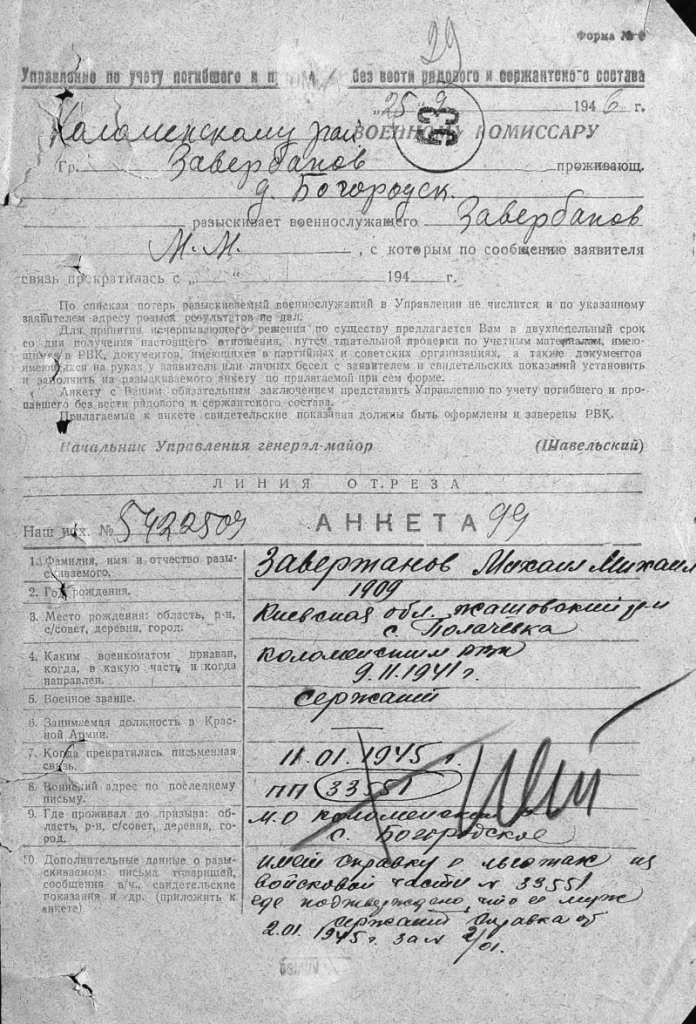 Форма №
29
Управление по учету погибшего и п без вести рядового и сержантского состава
„25 9 1946 г.
93
Коломенскому рай ВОЕННОМУ КОМИССАРУ
Гр. Завербанов проживающ.
д. Богородск.
разыскивает военнослужащего Завербанов
М. М. , с которым по сообщению заявителя
связь прекратилась с „ “ 194 г.
По спискам потерь разыскиваемый военнослужащий в Управлении не числится и по указанному
заявителем адресу розыск результатов не дал.
Для принятия исчерпывающего решения по существу предлагается Вам в двухнедельный срок
со дня получения настоящего отношения, путем тщательной проверки по учетным материалам, имею-
щимся в РВК, документов, имеющихся в партийных и советских организациях, а также документов
имеющихся на руках у заявителя или личных бесед с заявителем и свидетельских показаний установить
и заполнить на разыскиваемого анкету по прилагаемой при сем форме.
Анкету с Вашим обязательным заключением представить Управлению по учету погибшего и про-
павшего без вести рядового и сержантского состава.
Прилагаемые к анкете свидетельские показания должны быть оформлены и заверены РВК.
Начальник Управления генерал-майор (Шавельский)
ЛИНИЯ ОТРЕЗА
Наш исх. № 5422509 АНКЕТА 99
1. Фамилия, имя и отчество разы-
скиваемого. Завержанов Михаил Михаил
2. Год рождения. 1909
3. Место рождения: область, р-н,
с/совет, деревня, город. Киевская обл. жашовский
с. Полачевка
4. Каким военкоматом призван,
когда, в какую часть и когда
направлен. Коломенским рвк
9.11.1941 г.
5. Военное звание. сержант
6. Занимаемая должность в Крас-
ной Армии. —
7. Когда прекратилась письменная
связь. 11.01.1945 г.
8. Воинский адрес по последнему
письму. ПП 33551
9. Где проживал до призыва: об-
ласть, р-н, с/совет, деревня, го-
род. М.О Коломенский
с. Богородское
10. Дополнительные данные о разы-
скиваемом: письма товарищей,
сообщения в/ч., свидетельские
показания и др. (приложить к
анкете) имей справку о льготах из
войсковой части № 33551
где подтверждено, что ее муж
сержант справка от
2.01. 1945 г. за № 2/01.